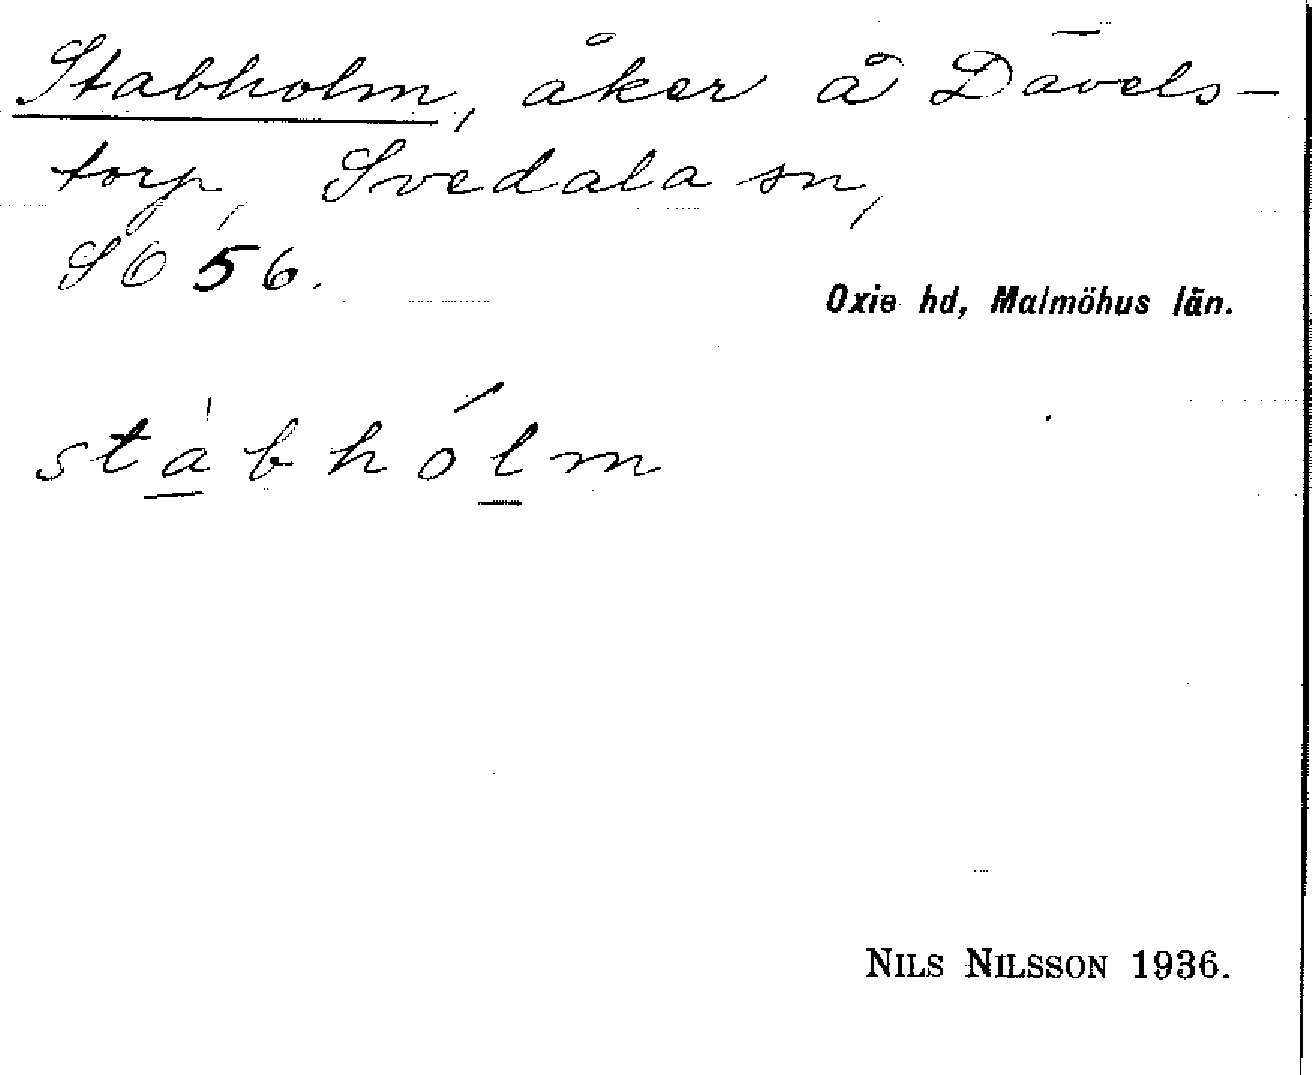 Stabholm, åker å Dāvels-
torp, Svedala sn,
SO 56.
Oxie hd, Malmöhus län.
stabholm
NILS NILSSON 1936.